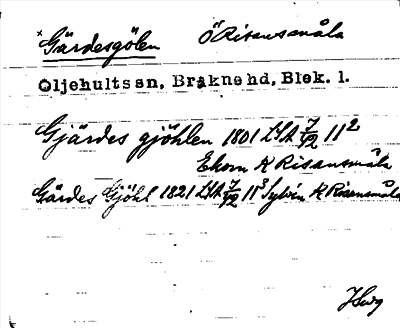 *Gärdesgölen Ö Risansmåla
Oljehults sn, Bräkne hd, Blek. l.
Gjärdes gjöhlen 1801 LSA 7/72 11²
Ekorn K Risansmåla
Gärdes Gjöhl 1821 LSA 7/72 11³ Sylvén K Risansmåla